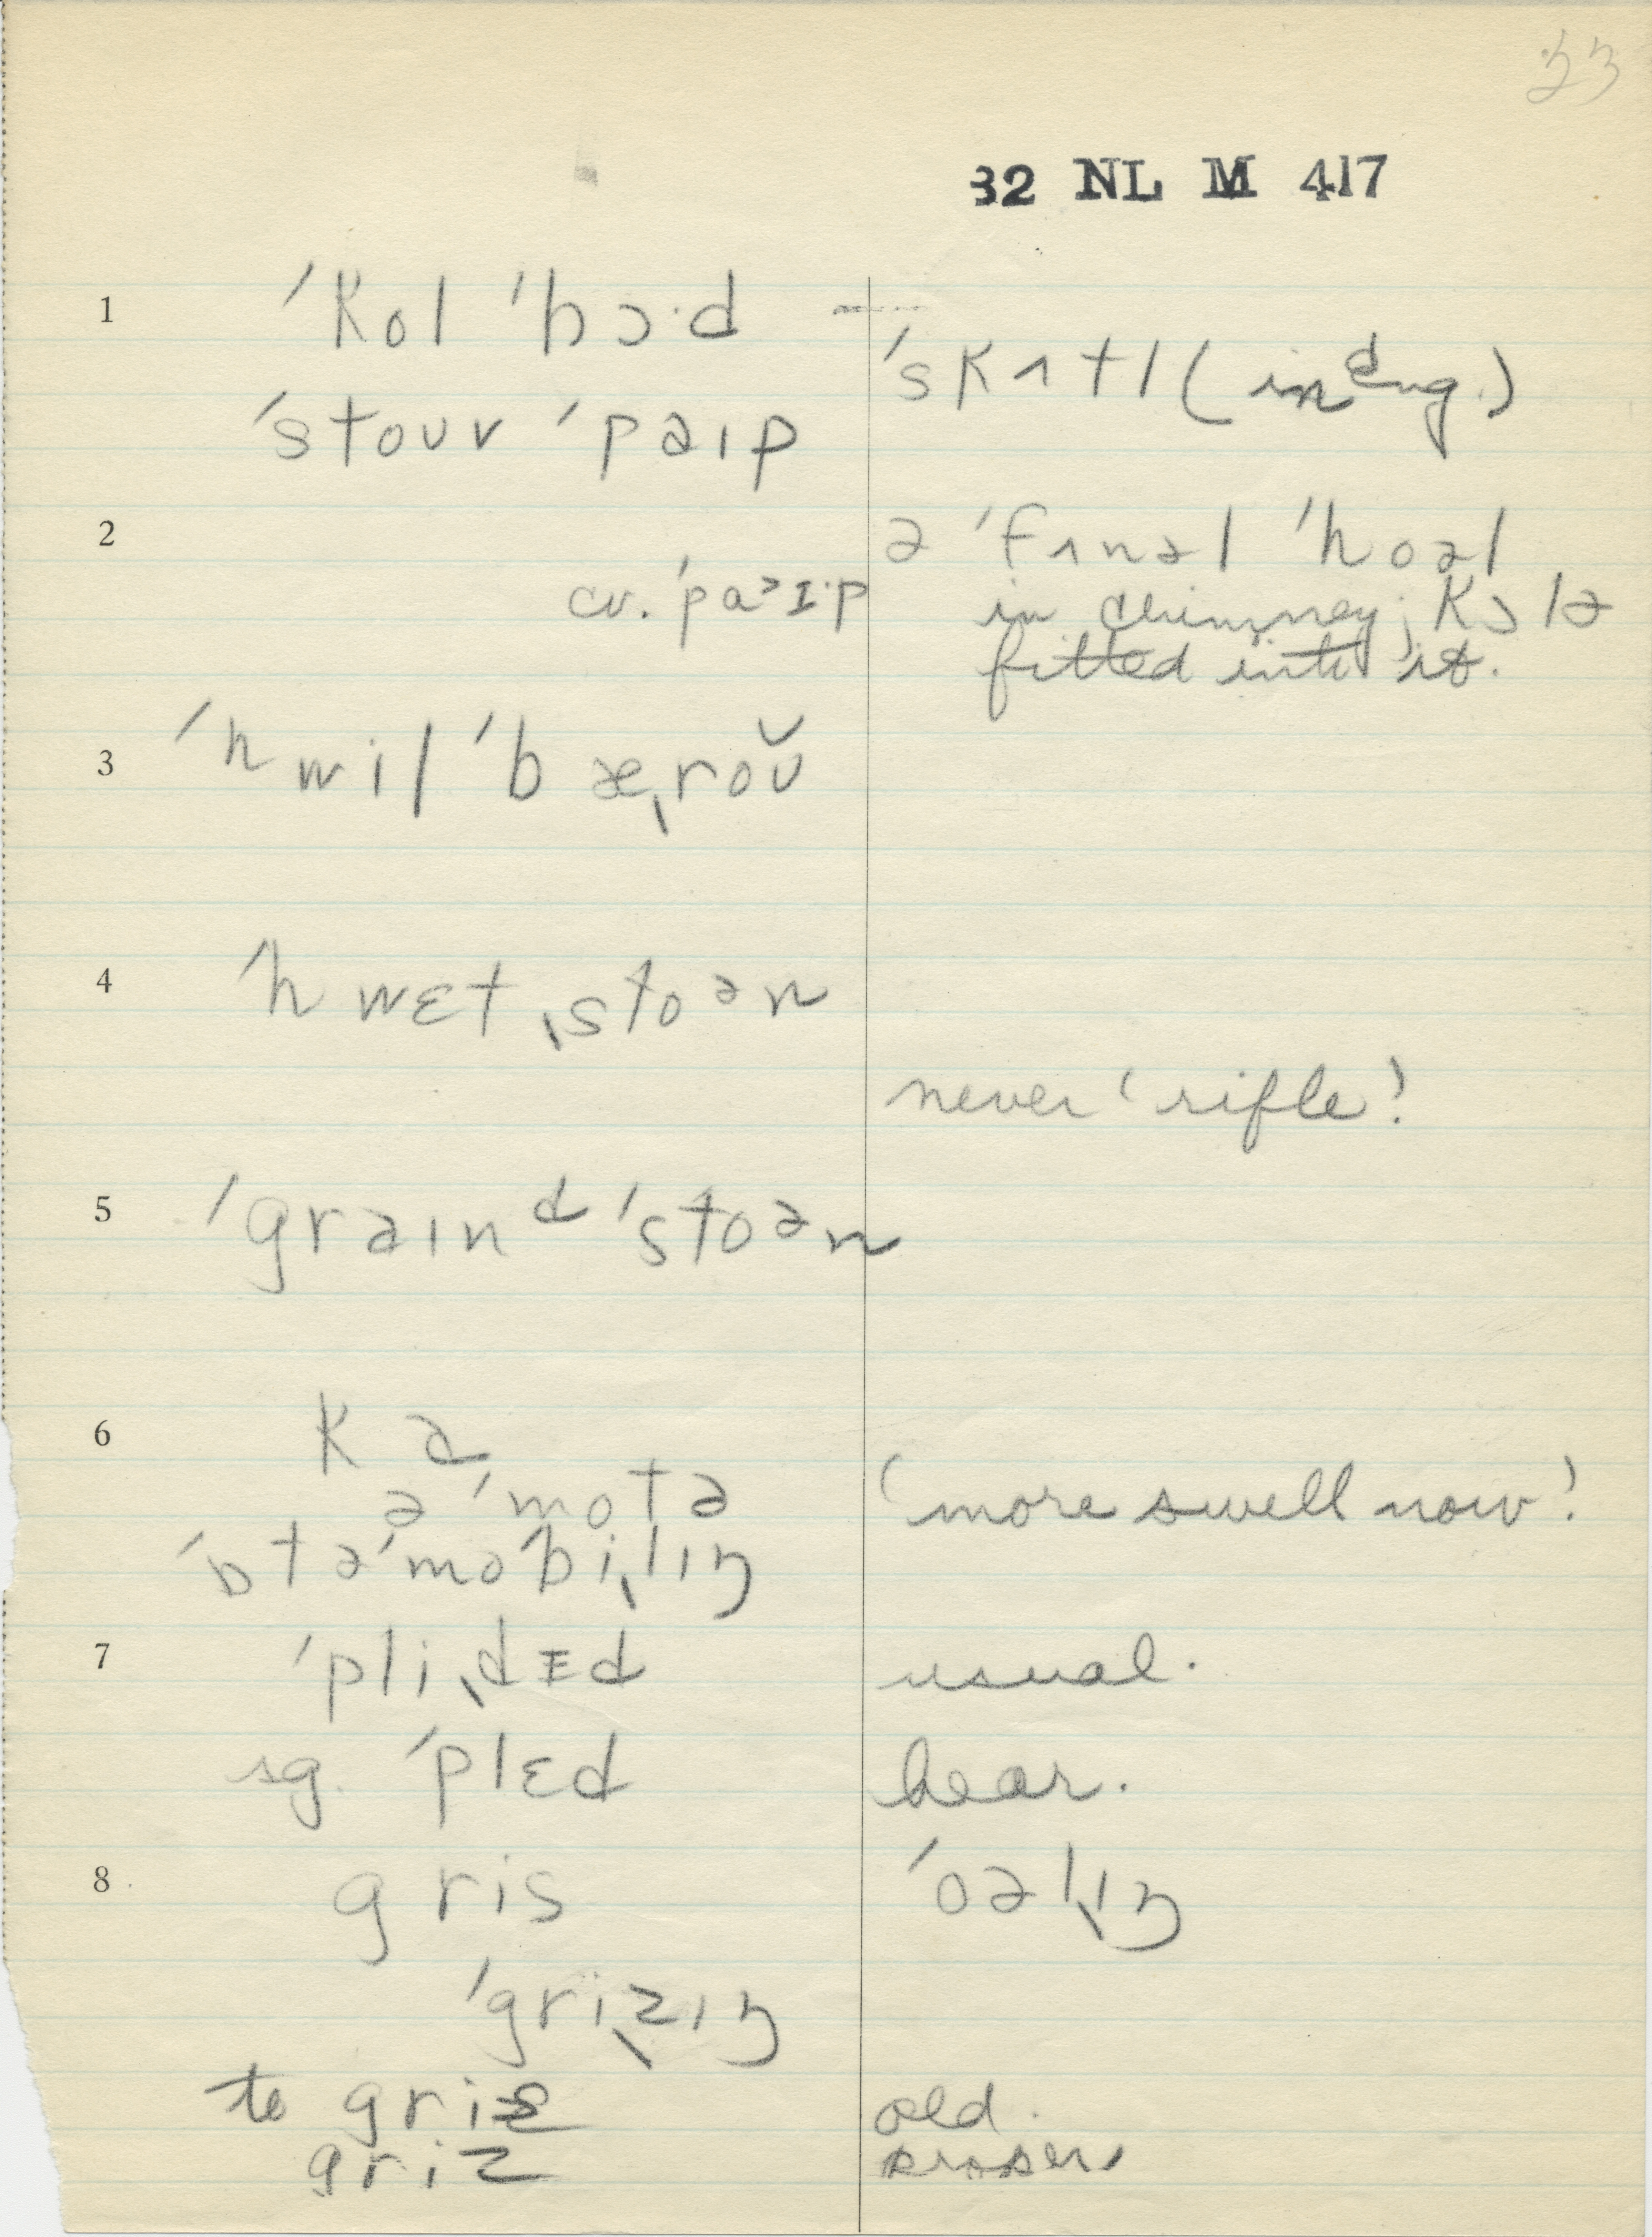 23
32 NL M 417
1 ˈkol ˈhɔ·d
ˈskʌtl (in Eng.)
ˈstouv ˈpaɪp
2 ə ˈfʌnəl ˈhoəl
cv. ˈpaᵊɪ·p
in chimney; kɔlə
fitted into it.
3 ˈhwilˈbæˌroŭ
4 ˈhwɛtˌstoən
never ‘rifle’
5 ˈgraɪnᵈˈstoən
6 ka
əˈmotə
‘more swell now’
ˈɒtəˈmoˈbiˌlɪŋ
7 ˈpliˌdɪd usual.
sg. ˈplɛd hear.
8 gris ˈoəlˌɪŋ
ˈgriˌzɪŋ
to griz old.
griz proper